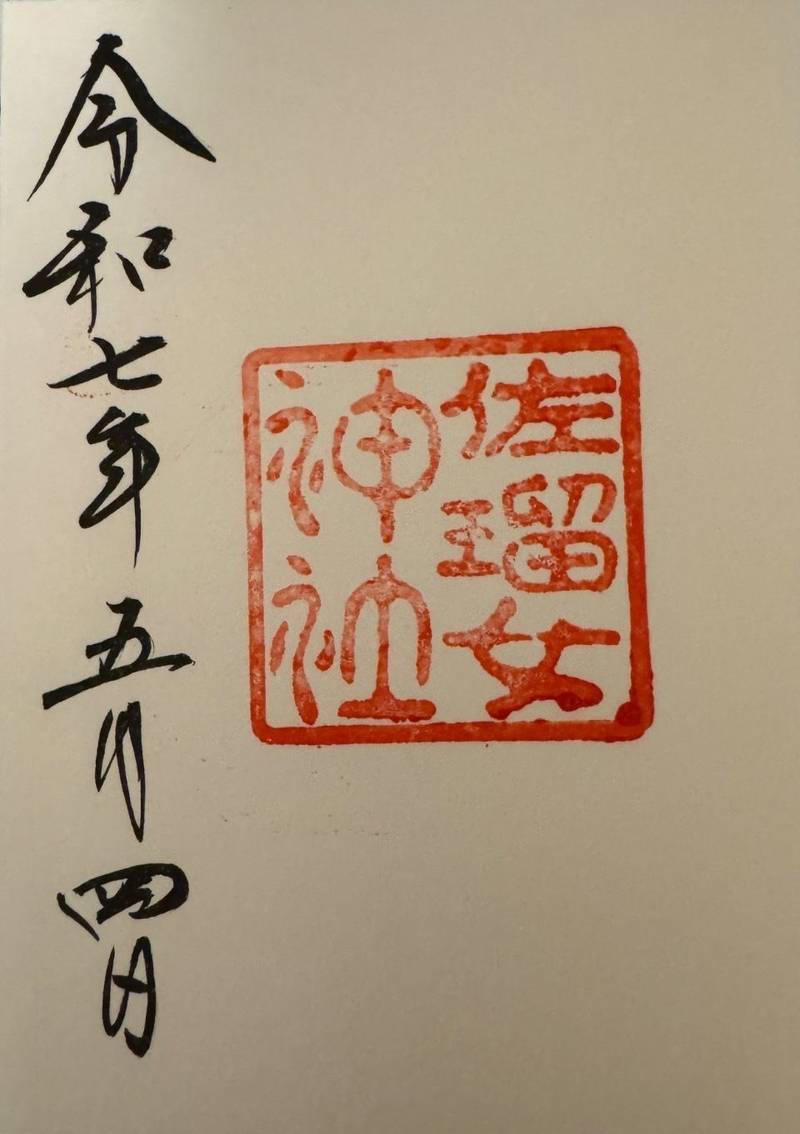 佐瑠女
神社
令和七年五月四日